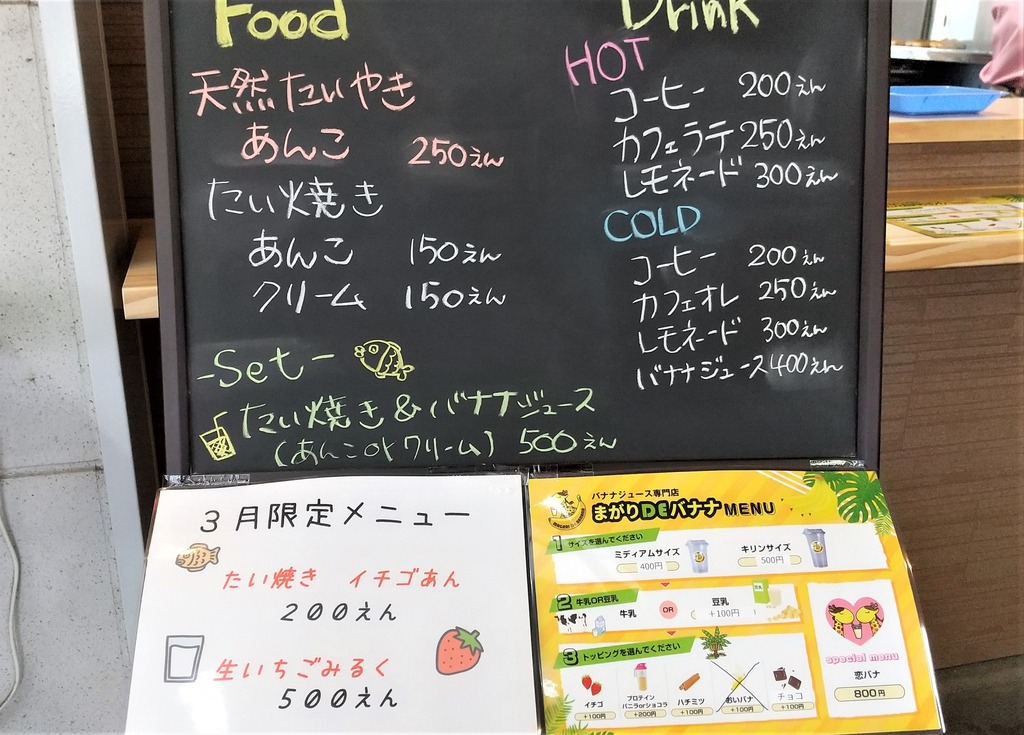 Food
天然たいやき
あんこ 250えん
たい焼き
あんこ 150えん
クリーム 150えん
-Set-
たい焼き&バナナジュース
(あんこorクリーム) 500えん
Drink
HOT
コーヒー 200えん
カフェラテ 250えん
レモネード 300えん
COLD
コーヒー 200えん
カフェオレ 250えん
レモネード 300えん
バナナジュース 400えん
3月限定メニュー
たい焼き イチゴあん
200えん
生いちごみるく
500えん
バナナジュース専門店
まがりDEバナナ MENU
1 サイズを選んでください
ミディアムサイズ
400円
キリンサイズ
500円
2 牛乳OR豆乳
牛乳
OR
豆乳
+100円
3 トッピングを選んでください
イチゴ
+100円
プロテイン
バニラorショコラ
+200円
ハチミツ
+100円
おいバナ
+100円
チョコ
+100円
special menu
恋バナ
800円